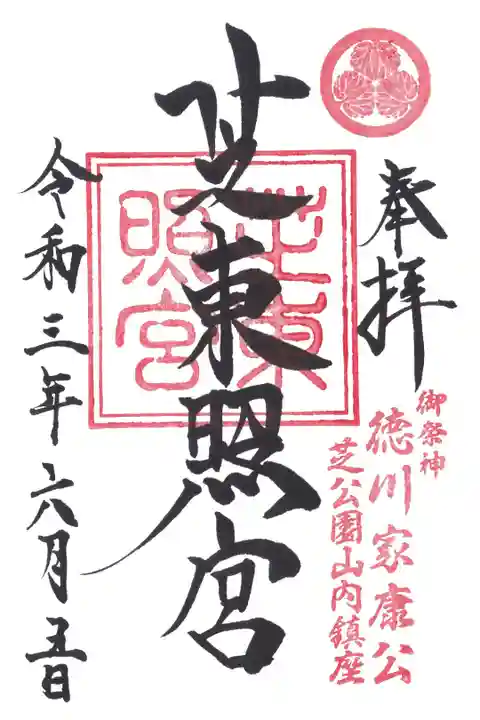 奉拝
御祭神
徳川家康公
芝公園山内鎮座
芝東照宮
芝東
照宮
令和三年六月五日